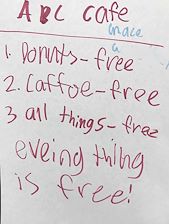 ABC cafe
Grace
1. Donuts-free
2. Caffoe-free
3 all things-free
eveing thing
is free!